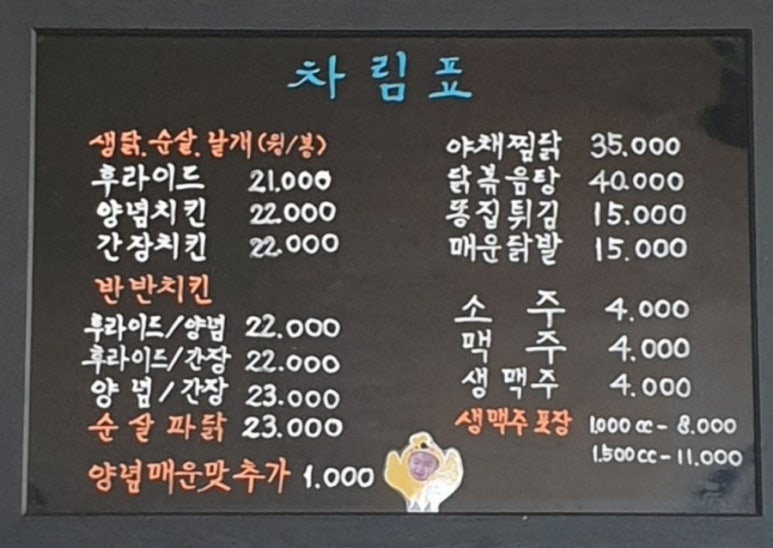 차림표
생닭, 순살, 날개(윙/봉)
후라이드 21.000
양념치킨 22.000
간장치킨 22.000
반반치킨
후라이드/양념 22.000
후라이드/간장 22.000
양념/간장 23.000
순살파닭 23.000
양념매운맛추가 1.000
야채찜닭 35.000
닭볶음탕 40.000
똥집튀김 15.000
매운닭발 15.000
소주 4.000
맥주 4.000
생맥주 4.000
생맥주포장 1.000cc - 8.000
1.500cc - 11.000